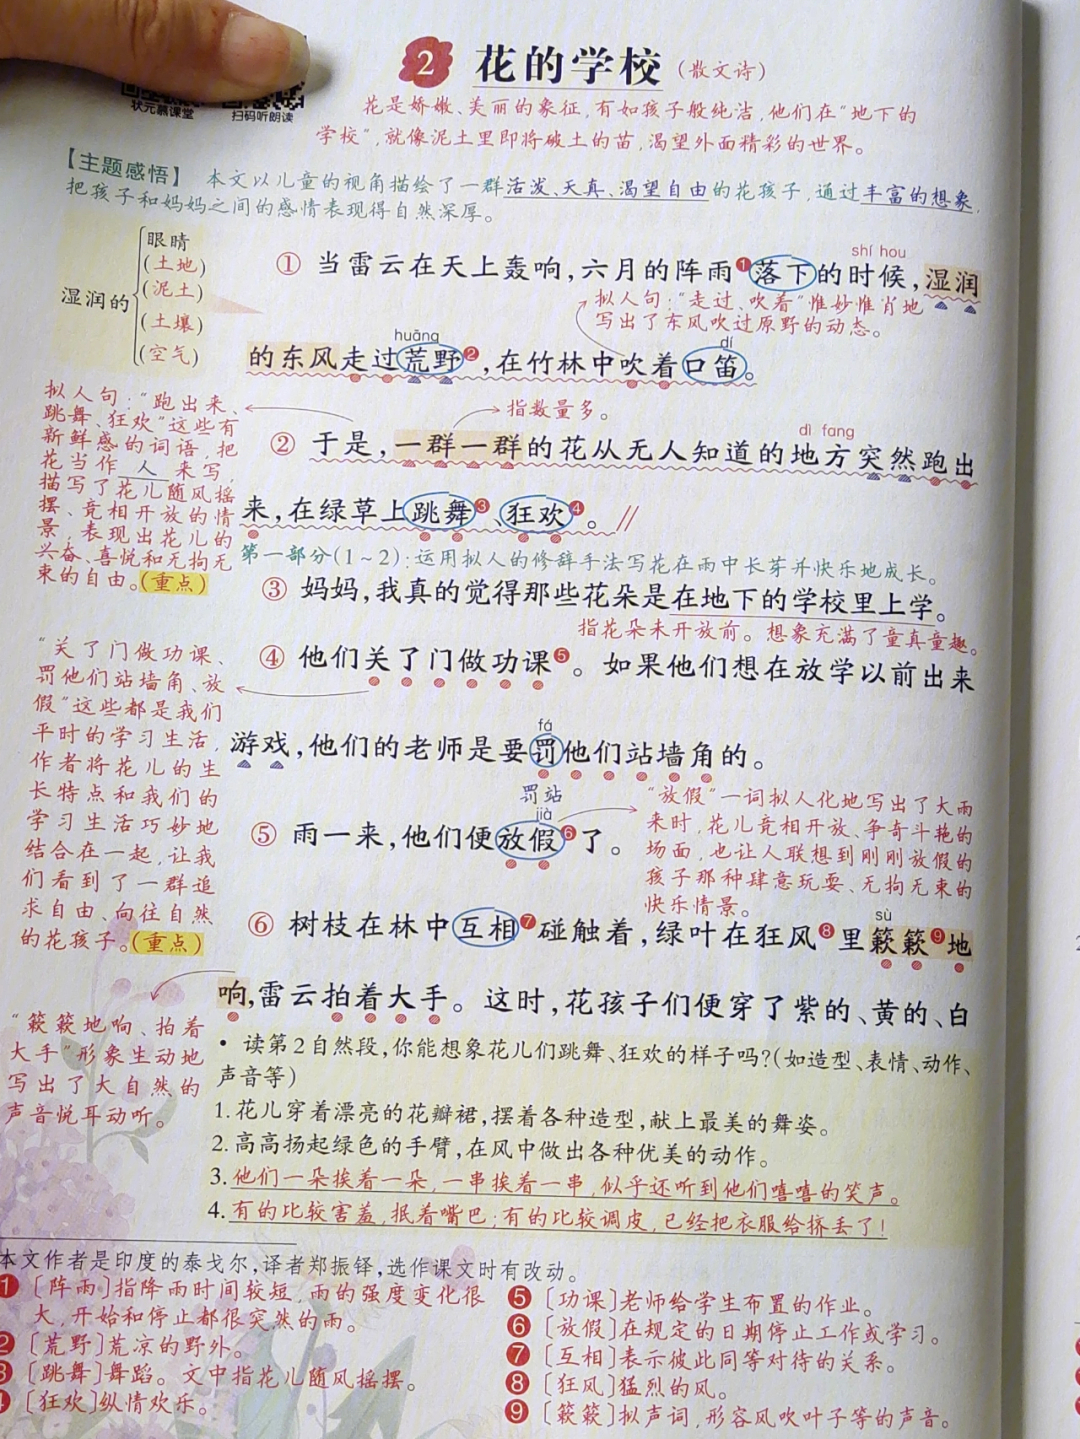 2 花的学校(散文诗)
状元慕课堂 扫码听朗读
花是娇嫩、美丽的象征,有如孩子般纯洁,他们在“地下的
学校”,就像泥土里即将破土的苗,渴望外面精彩的世界。
【主题感悟】 本文以儿童的视角描绘了一群活泼、天真、渴望自由的花孩子,通过丰富的想象,
把孩子和妈妈之间的感情表现得自然深厚。
湿润的
眼睛
(土地)
(泥土)
(土壤)
(空气)
shí hou
① 当雷云在天上轰响,六月的阵雨❶落下的时候,湿润
拟人句:“走过、吹着”惟妙惟肖地
写出了东风吹过原野的动态。
huāng dí
的东风走过荒野❷,在竹林中吹着口笛。
拟人句:“跑出来、
跳舞、狂欢”这些有
新鲜感的词语,把
花当作 人 来写,
描写了花儿随风摇
摆、竞相开放的情
景,表现出花儿的
兴奋、喜悦和无拘无
束的自由。(重点)
指数量多。
dì fang
② 于是,一群一群的花从无人知道的地方突然跑出
来,在绿草上跳舞❸、狂欢❹。//
第一部分(1~2):运用拟人的修辞手法写花在雨中长芽并快乐地成长。
③ 妈妈,我真的觉得那些花朵是在地下的学校里上学。
指花朵未开放前。想象充满了童真童趣。
“关了门做功课、
罚他们站墙角、放
假”这些都是我们
平时的学习生活,
作者将花儿的生
长特点和我们的
学习生活巧妙地
结合在一起,让我
们看到了一群追
求自由、向往自然
的花孩子。(重点)
④ 他们关了门做功课❺。如果他们想在放学以前出来
fá
游戏,他们的老师是要罚他们站墙角的。
罚站
jià
⑤ 雨一来,他们便放假❻了。
“放假”一词拟人化地写出了大雨
来时,花儿竞相开放、争奇斗艳的
场面,也让人联想到刚刚放假的
孩子那种肆意玩耍、无拘无束的
快乐情景。
sù
⑥ 树枝在林中互相❼碰触着,绿叶在狂风❽里簌簌❾地
响,雷云拍着大手。这时,花孩子们便穿了紫的、黄的、白
“簌簌地响、拍着
大手”形象生动地
写出了大自然的
声音悦耳动听。
• 读第2自然段,你能想象花儿们跳舞、狂欢的样子吗?(如造型、表情、动作、
声音等)
1.花儿穿着漂亮的花瓣裙,摆着各种造型,献上最美的舞姿。
2.高高扬起绿色的手臂,在风中做出各种优美的动作。
3.他们一朵挨着一朵,一串挨着一串,似乎还听到他们嘻嘻的笑声。
4.有的比较害羞,抿着嘴巴;有的比较调皮,已经把衣服给挤丢了!
本文作者是印度的泰戈尔,译者郑振铎,选作课文时有改动。
❶〔阵雨〕指降雨时间较短,雨的强度变化很
大,开始和停止都很突然的雨。
❷〔荒野〕荒凉的野外。
❸〔跳舞〕舞蹈。文中指花儿随风摇摆。
❹〔狂欢〕纵情欢乐。
❺〔功课〕老师给学生布置的作业。
❻〔放假〕在规定的日期停止工作或学习。
❼〔互相〕表示彼此同等对待的关系。
❽〔狂风〕猛烈的风。
❾〔簌簌〕拟声词,形容风吹叶子等的声音。